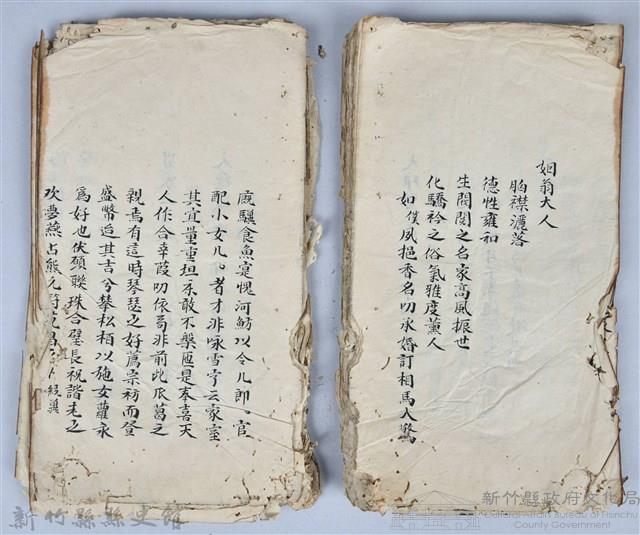 姻翁大人
胸襟灑落
德性雍和
生閥閱之名家高風振世
化驕矜之俗氣雅度薰人
如僕夙挹香名叨承婚訂相馬人驚
廄驥食魚寔愧河魴以令儿郎官
配小女儿者才非咏雪宁云家室
其宜量重坦床敢不槃匜是奉喜天
人作合幸葭叨依苟非前此瓜葛之
親焉有這時琴瑟之好蔦宗祊而登
盛幣迨其吉兮攀松栢以施女蘿永
為好也伏願聯珠合璧長祝諧老之
欢夢燕占熊允符
新竹縣縣史館
新竹縣政府文化局
Cultural Affair Bureau of Hsinchu
County Government